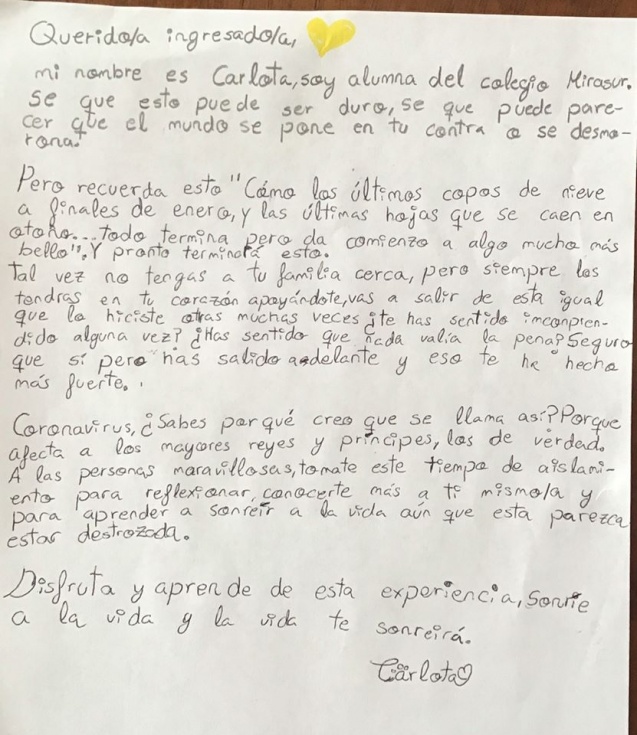 Querido/a ingresado/a,
mi nombre es Carlota, soy alumna del colegio Mirasur.
se que esto puede ser duro, se que puede pare-
cer que el mundo se pone en tu contra o se desmo-
rona.
Pero recuerda esto "Cómo los últimos copos de nieve
a finales de enero, y las últimas hojas que se caen en
otoño... todo termina pero da comienzo a algo mucho más
bello". Y pronto terminará esto.
Tal vez no tengas a tu familia cerca, pero siempre los
tendras en tu corazón apoyándote, vas a salir de esta igual
que lo hiciste otras muchas veces ¿te has sentido imconpren-
dido alguna vez? ¿Has sentido que nada valía la pena? Seguro
que sí pero has salido adelante y eso te he hecho
más fuerte.
Coronavirus, ¿Sabes por qué creo que se llama así? Porque
afecta a los mayores reyes y príncipes, los de verdad.
A las personas maravillosas, tomate este tiempo de aislami-
ento para reflexionar, conocerte más a ti mismo/a y
para aprender a sonreír a la vida aún que esta parezca
estar destrozada.
Disfruta y aprende de esta experiencia, Sonrie
a la vida y la vida te sonreirá.
Carlota